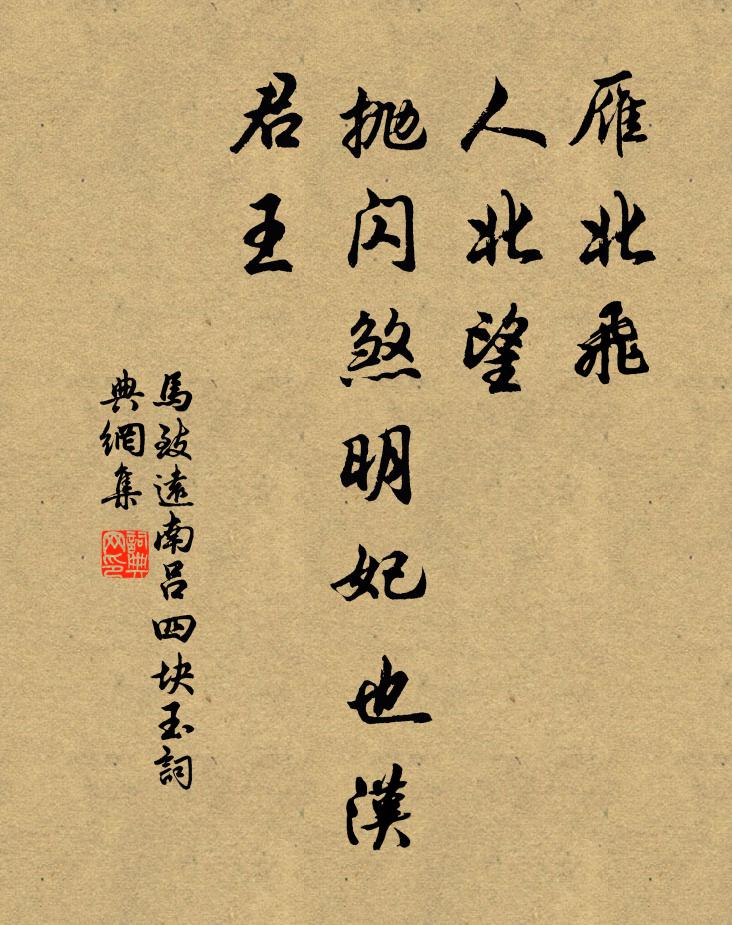 雁北飛
人北望
抛闪煞明妃也漢
君王
馬致遠南吕四块玉詞
典網集
詞典
网印